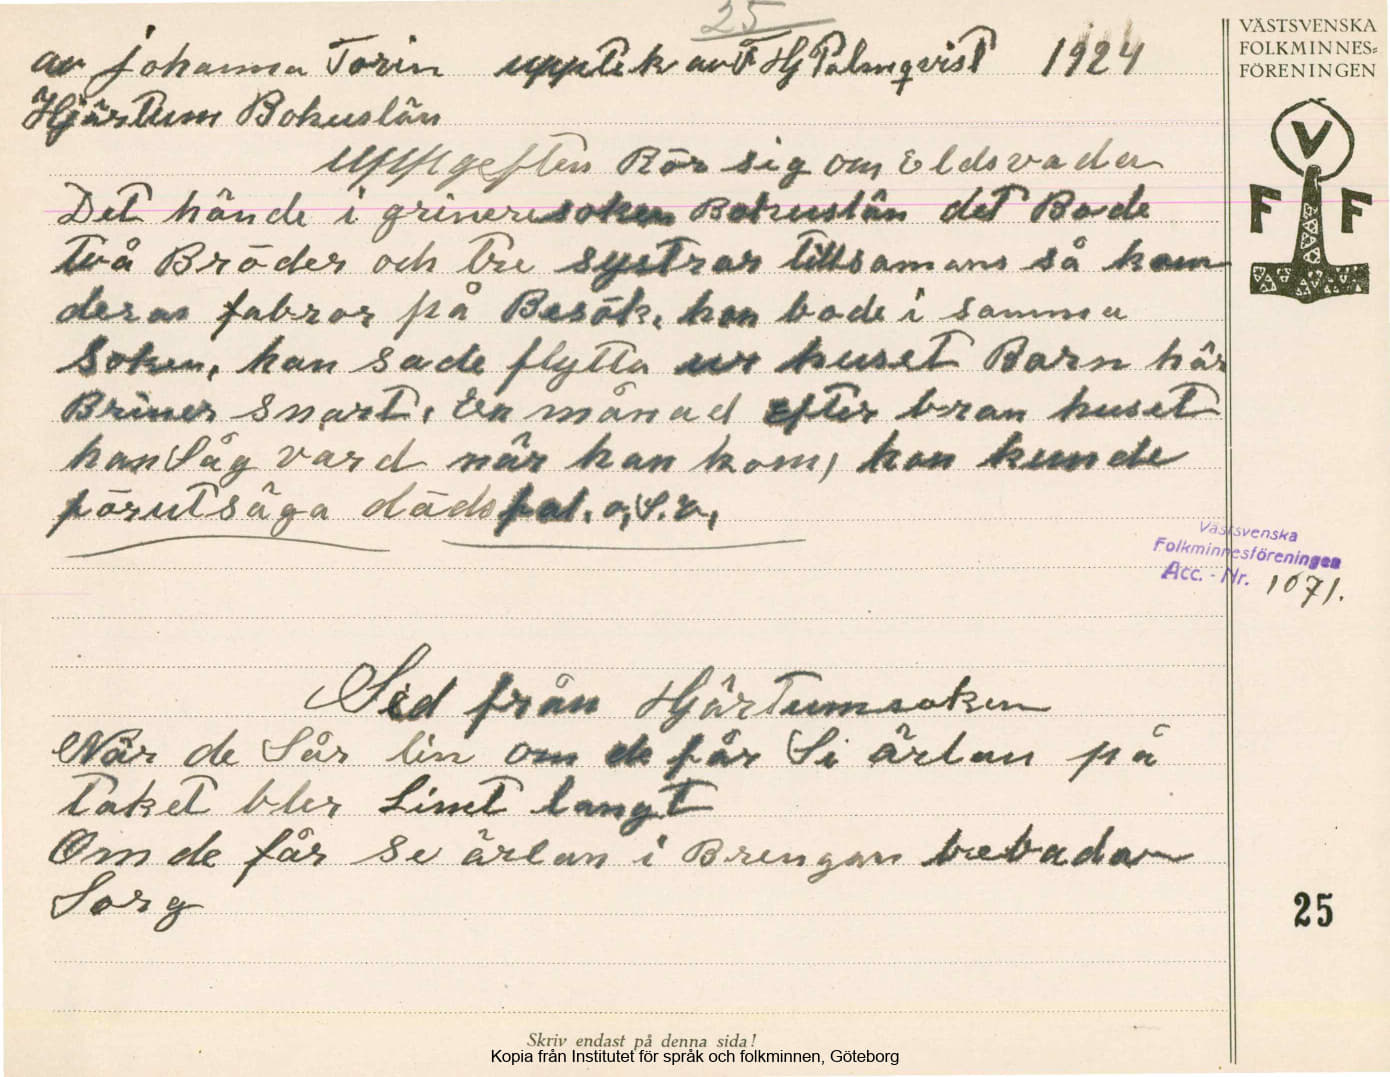 25
av Johanna Torin upptek av F Hj Palmqvist 1924
Hjärtum Bohuslän
uppgeften Rör sig om Eldsvada
Det hände i grinnere soken Bohuslän det Bode
två Bröder och tre systrar tillsamans så kom
deras fabror på Besök, han bode i samma
Soken, han sade flytta ur huset Barn här
Briner snart, En månad efter bran huset
han Såg vard när han kom, han kunde
förutsäga dödsfal. o, S. v,
Sed från Hjärtumsoken
När de Sår lin om de får Si ärlan på
taket bler Linet langt
Om de får se ärlan i Brengan bebadar
Sorg
VÄSTSVENSKA
FOLKMINNES=
FÖRENINGEN
V
F F
Västsvenska
Folkminnesföreningen
Acc. - Nr. 1071.
25
Skriv endast på denna sida!
Kopia från Institutet för språk och folkminnen, Göteborg